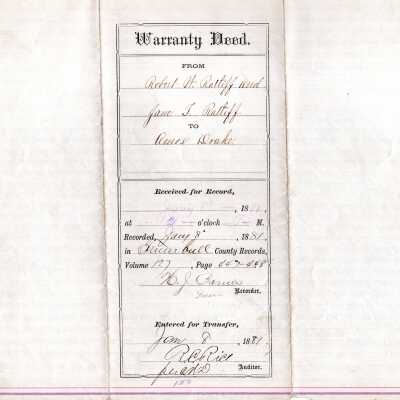 Warranty Deed.
FROM
Robert H. Ratliff and
Jane T. Ratliff
TO
Amos Drake
Received for Record,
Jany 8, 1881,
at o'clock M.
Recorded, Jany 8" , 1881
in Trumbull County Records,
Volume 127, Page 657-658
Recorder.
Entered for Transfer,
Jan 8, 1881
R.C. Rice
Auditor.